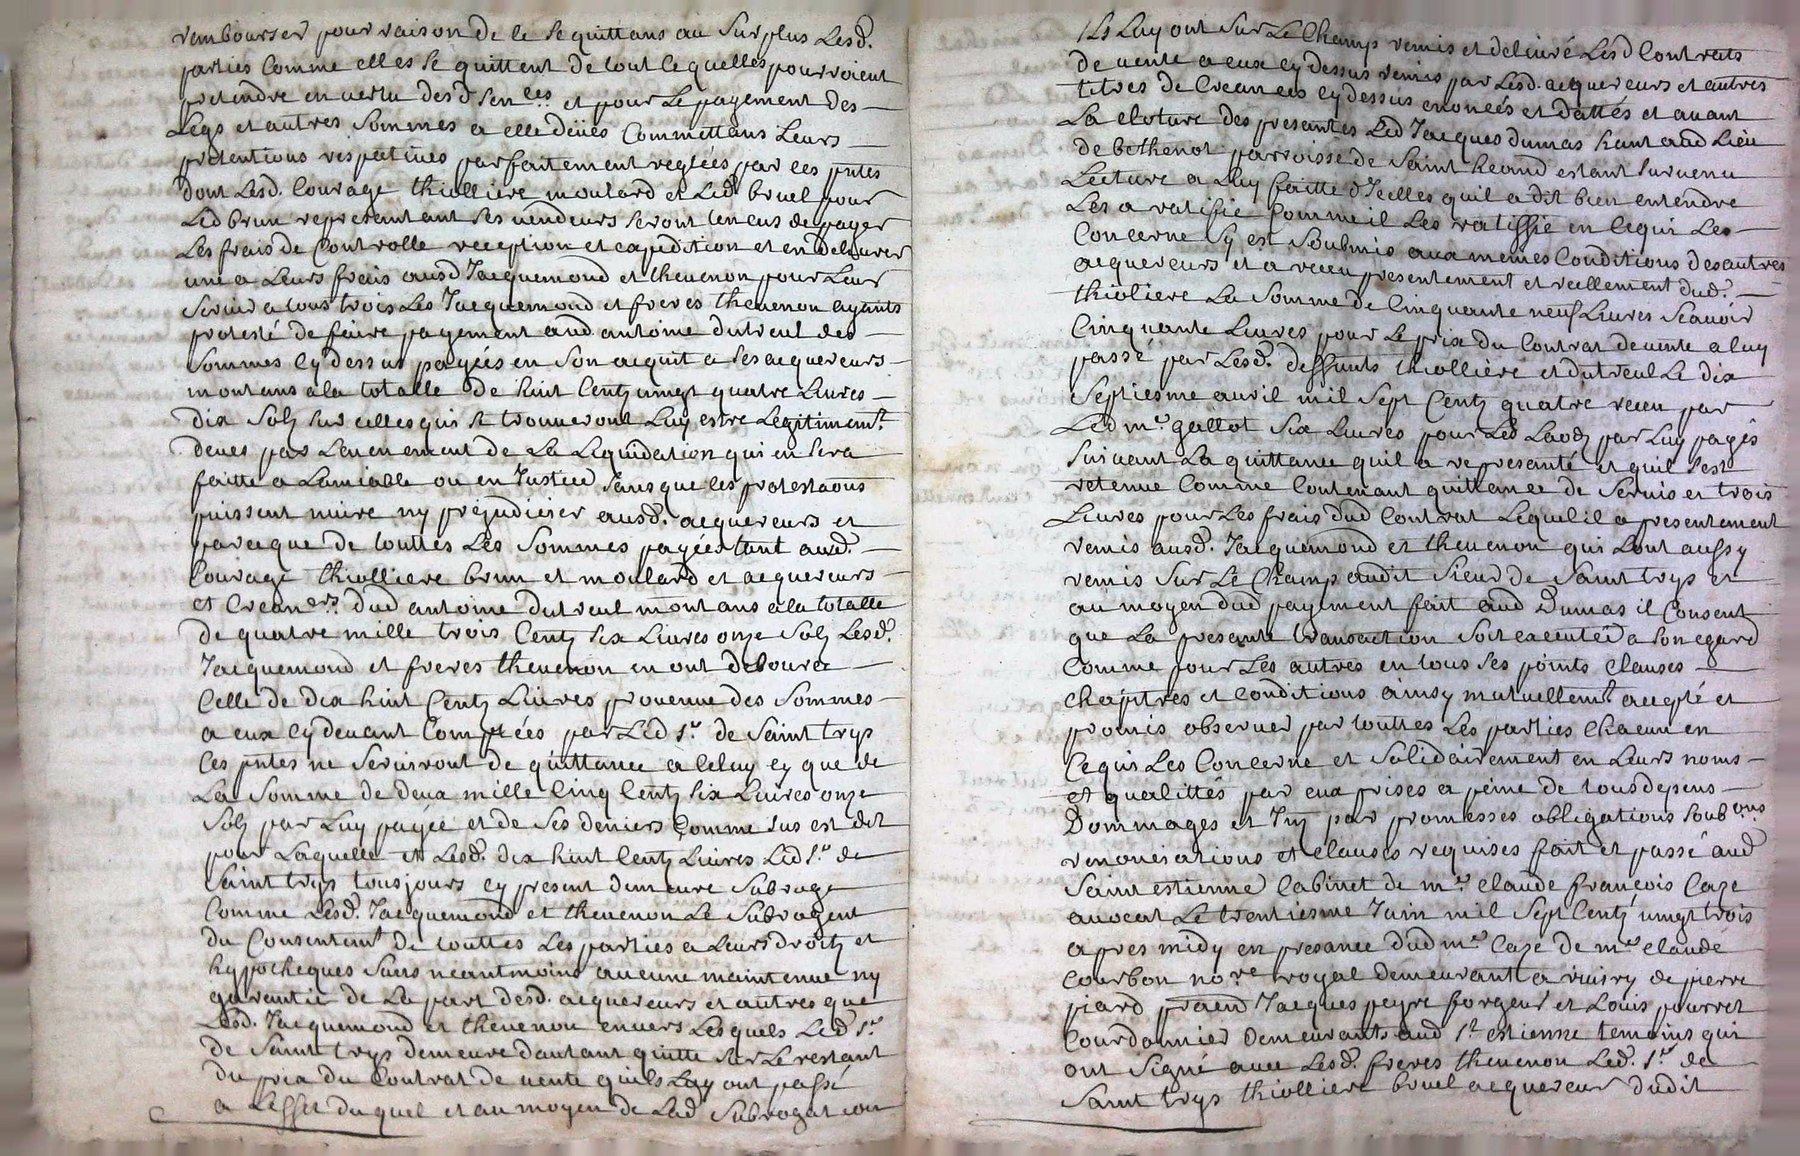 rembourser pour raison de ce se quittans au surplus lesd.
parties comme elles se quittent de tout ce quelles pourroient
pretendre en vertu desd sen.ces et pour le payement des
legs et autres sommes a elle deües committans leurs
pretentions respatiües parfaitement reglées par ces pntes
dont lesd. Courage thiolliere moulard et led bruel pour
led brun representant ses vendeurs seront tenus de payer
les frais de controlle reception et expedition et en delivrer
une a leurs frais ausd Jacquemond et thevenon pour leur
servir a tous trois les Jacquemond et freres thevenon ayants
protesté de faire payement aud antoine dutreul des
sommes cy dessus payées en son acquit a ses acquereurs
montans a la totalle de huit centz vingt quatre livres
dix solz sur celles qui se trouveront luy estre legitimem.t
deües par levenement de la liquidation qui en sera
faitte a lamiable ou en Justice sans que ces protestaons
puissent nuire ny prejudicier ausd. acquereurs et
parceque de touttes les sommes payées tant ausd.
Courage thiolliere brun et moulard et acquereurs
et crean.ers dud antoine dutreul montans a la totalle
de quatre mille trois centz six livres onze solz lesd.
Jacquemond et freres thevenon en ont debourcé
celle de dix huit centz livres provenue des sommes
a eux cy devant comptées par led s.r de saint trys
ces pntes ne serviront de quittance a celuy cy que de
la somme de deux mille cinq centz six livres onze
solz par luy payée et de ses deniers comme sus est dit
pour laquelle et lesd. dix huit centz livres led s.r de
saint trys tousjours cy present demeure subrogé
comme lesd. Jacquemond et thevenon le subrogent
du consentem.t de touttes les parties a leurs droitz et
hypotheques sans neantmoins aucune maintenue ny
garantie de la part desd. acquereurs et autres que
lesd. Jacquemond et thevenon envers lesquels led s.r
de saint trys demeure dautant quitte sur le restant
du prix du contrat de vente quils luy ont passé
a leffet duquel et au moyen de lad subrogation
ils luy ont sur le champ remis et delivré lesd contrats
de vente a eux cy dessus remis par lesd. acquereurs et autres
titres de creances cy dessus enoncés et dattés et avant
la cloture des presentes led Jacques dumas hant aud lieu
de bethenot parroisse de saint heand estant survenu
lecture a luy faitte d'Icelles quil a dit bien entendre
les a ratifié comme il les ratiffie en cequi les
concerne sy est soubmis aux memes conditions des autres
acquereurs et a receu presentement et reellement dud.
thioliere la somme de cinquante neuf livres scavoir
cinquante livres pour le prix du contrat de vente a luy
passé par lesd. deffunts thiolliere et dutreul le dix
septiesme avril mil sept centz quatre receu par
led m.e gallot six livres pour led laodz par luy payés
suivant la quittance quil a representé et quil sest
retenue comme contenant quittance de servis et trois
livres pour les frais dud contrat lequel il a presentement
remis ausd. Jacquemond et thevenon qui lont aussy
remis sur le champ audit sieur de saint trys et
au moyen dud payement fait aud dumas il consent
que la presente transaction soit executée a son egard
comme pour les autres en tous ses points clauses
chapitres et conditions ainsy mutuellem.t accepté et
promis observer par touttes les parties chacun en
cequi les concerne et solidairement en leurs noms
et qualittés par eux prises a peine de tous depens
dommages et Intz par promesses obligations soub.ons
renonciations et clauses requises fait et passé aud
saint estienne cabinet de m.e claude françois Caze
avocat le trentiesme Juin mil sept centz vingt trois
apres midy en presance dud m.e Caze de m.e claude
Courbon no.re royal demeurant a viviry de pierre
piard Jacques peyre forgeur et Louis pourret
Courdannier demeurants aud s.t estienne temoins qui
ont signé avec lesd. freres thevenon led. s.r de
saint trys thiolliere bruel acquereur dudit